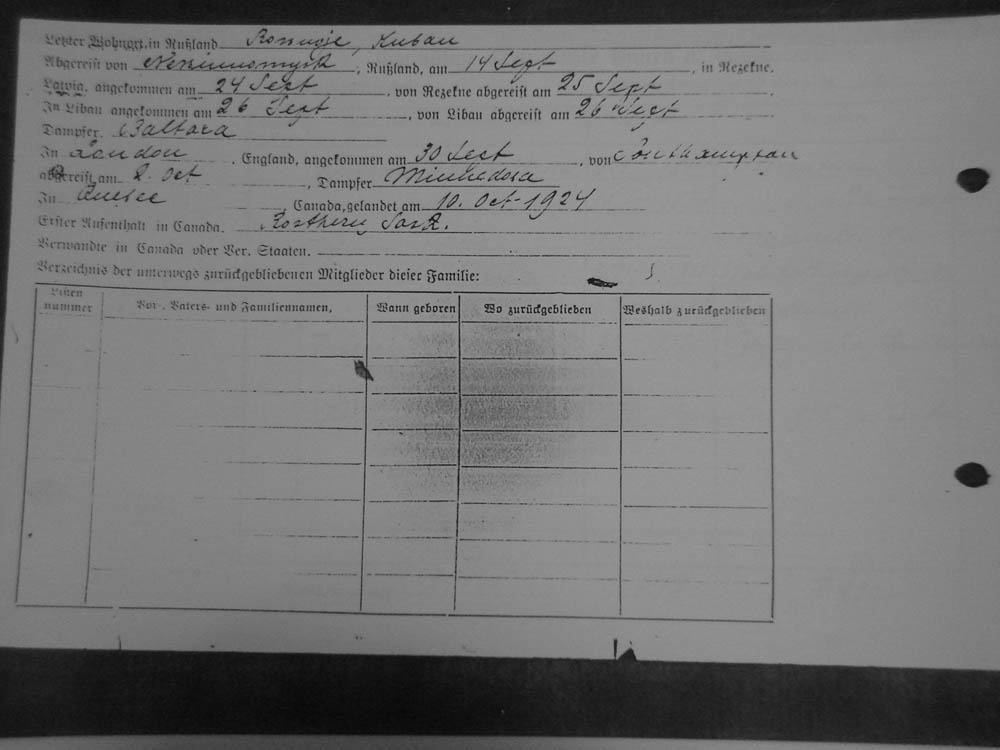 Letzter Wohnort in Rußland Kuban
Abgereist von , Rußland, am 14 Sept , in Rezekne,
Latvia, angekommen am 24 Sept , von Rezekne abgereist am 25 Sept
In Libau angekommen am 26 Sept , von Libau abgereist am 26 Sept
Dampfer. Baltara
In London , England, angekommen am 30 Sept , von Southampton
abgereist am 2. Oct , Dampfer Minnedosa
In Quebec , Canada, gelandet am 10. Oct-1924
Erster Aufenthalt in Canada. Rosthern, Sask.
Verwandte in Canada oder Ver. Staaten.
Verzeichnis der unterwegs zurückgebliebenen Mitglieder dieser Familie:
Listen nummer Vor-, Vaters- und Familiennamen, Wann geboren Wo zurückgeblieben Weshalb zurückgeblieben